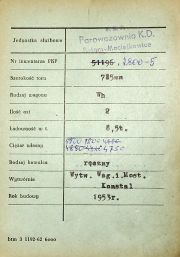 Jednostka służbowa Parowozownia K.D.
Nr inwentarza PKP 51196 2800-5
Szerokość toru 785mm
Rodzaj wagonu Wh
Ilość osi 2
Ładowność w t. 8,5t.
Ciężar własny
Rodzaj hamulca ręczny
Wytwórnia Wytw. Wag. i Most.
Konstal
Rok budowy 1953r.